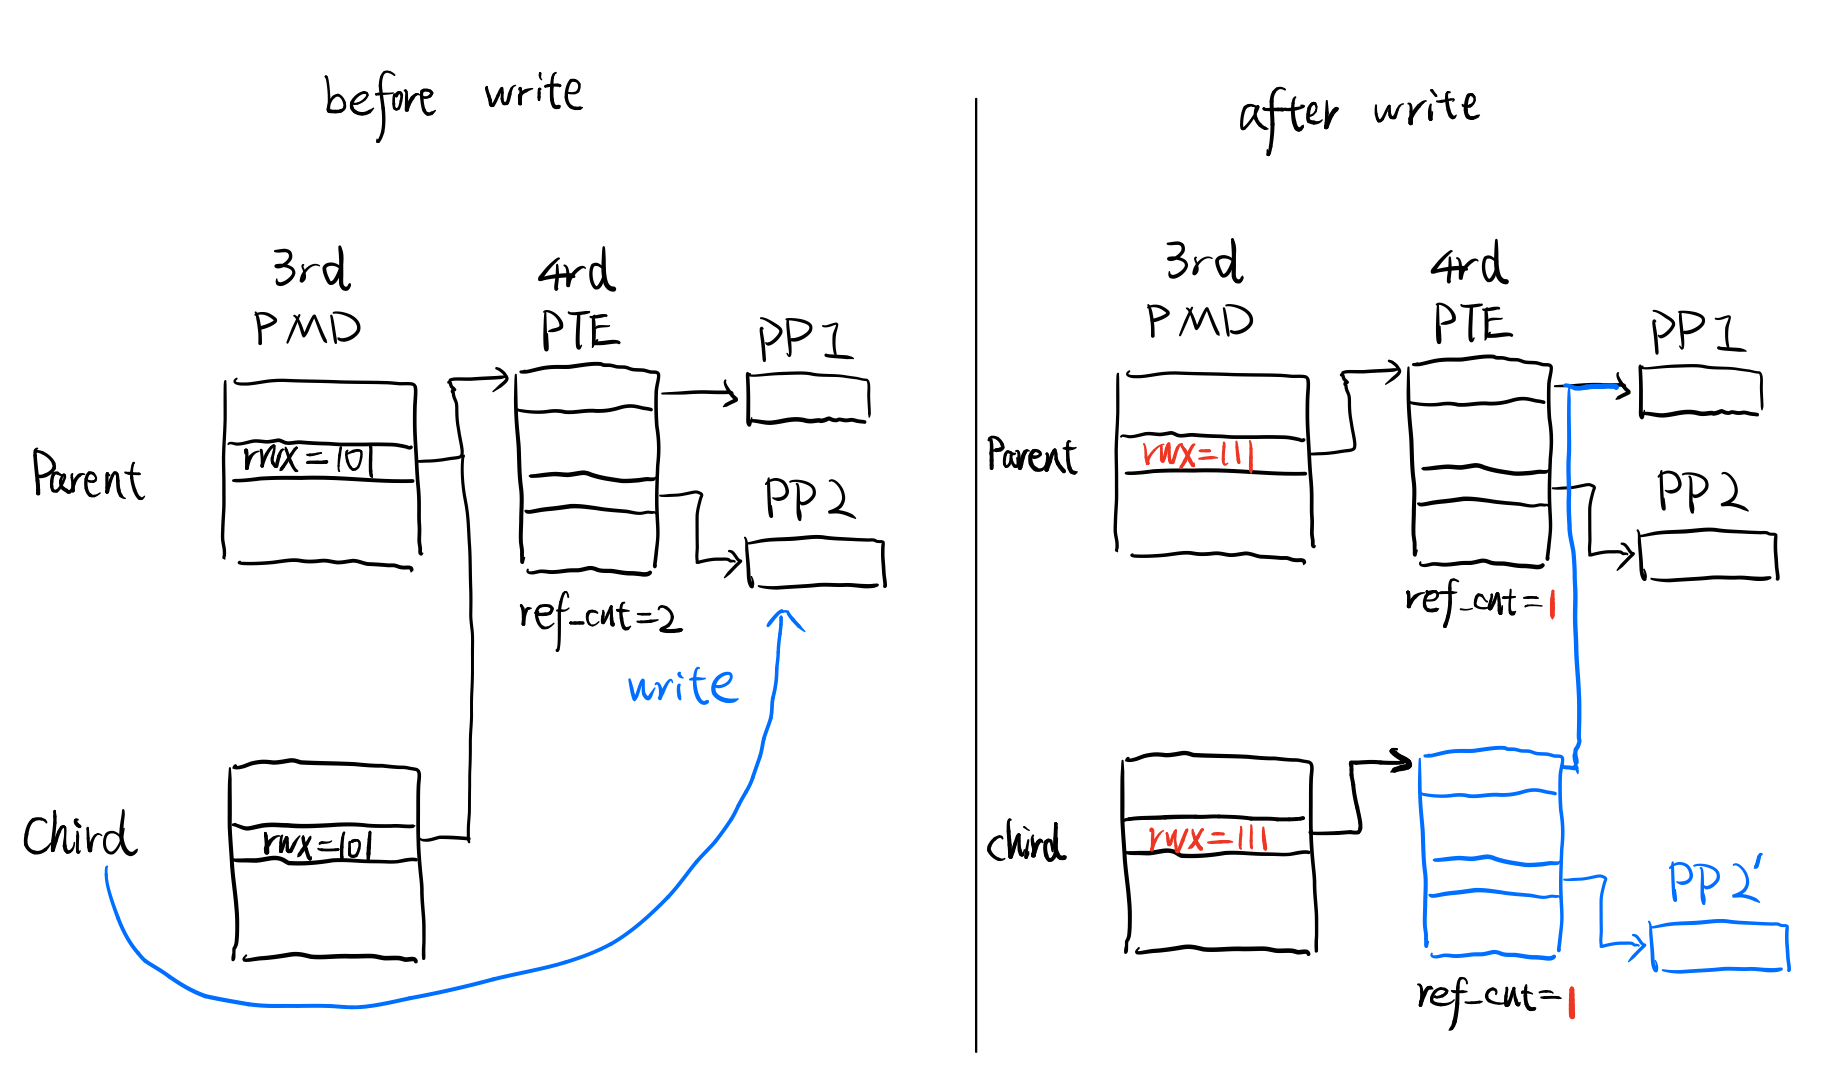 before write
3rd
PMD
4rd
PTE
PP1
Parent
rwx=101
PP2
ref_cnt=2
write
Chird
rwx=101
after write
3rd
PMD
4rd
PTE
PP1
Parent
rwx=111
PP2
ref_cnt=1
chird
rwx=111
PP2'
ref_cnt=1